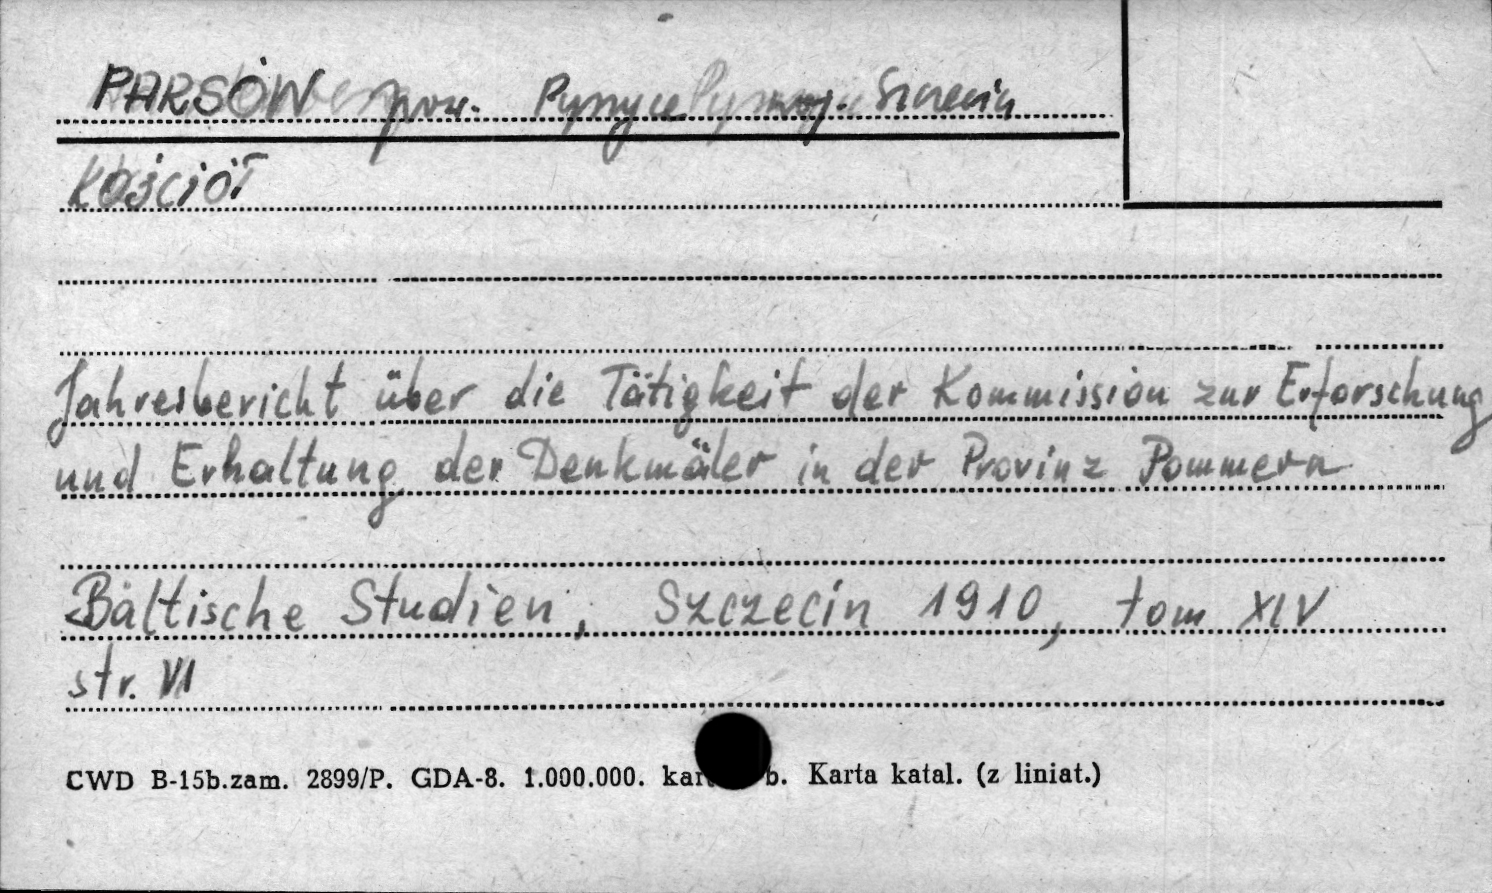 PARSÓW pow. Pyrzyce woj. Szczecin
KOŚCIÓŁ
Jahresbericht über die Tätigkeit der Kommission zur Erforschung
und Erhaltung der Denkmäler in der Provinz Pommern
Baltische Studien, Szczecin 1910, tom XIV
str. VI
CWD B-15b.zam. 2899/P. GDA-8. 1.000.000. b. Karta katal. (z liniat.)